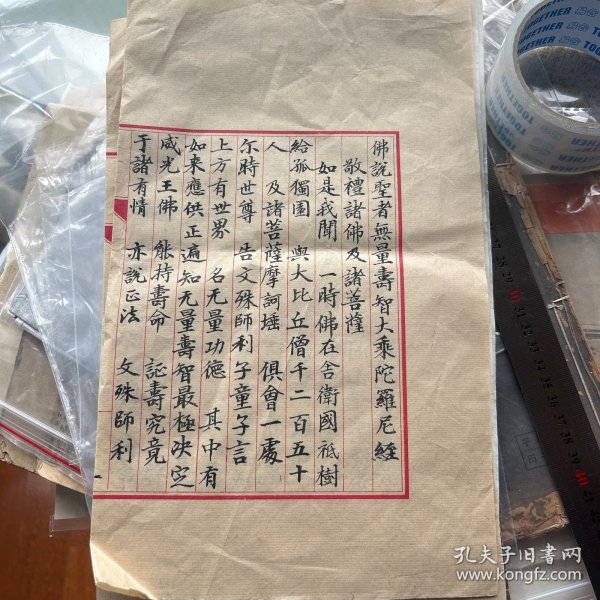 佛說聖者無量壽智大乘陀羅尼經
敬禮諸佛及諸菩薩
如是我聞 一時佛在舍衛國祇樹
給孤獨園 與大比丘僧千二百五十
人 及諸菩薩摩訶埵 俱會一處
尔時世尊 告文殊師利子童子言
上方有世界 名无量功德 其中有
如来應供正遍知无量壽智最極决定
威光王佛 能持壽命 証壽究竟
于諸有情 亦說正法 文殊師利
一
TOGETHER
TOGETHER
TOGETHER
孔夫子旧书网
www.kongfz.com